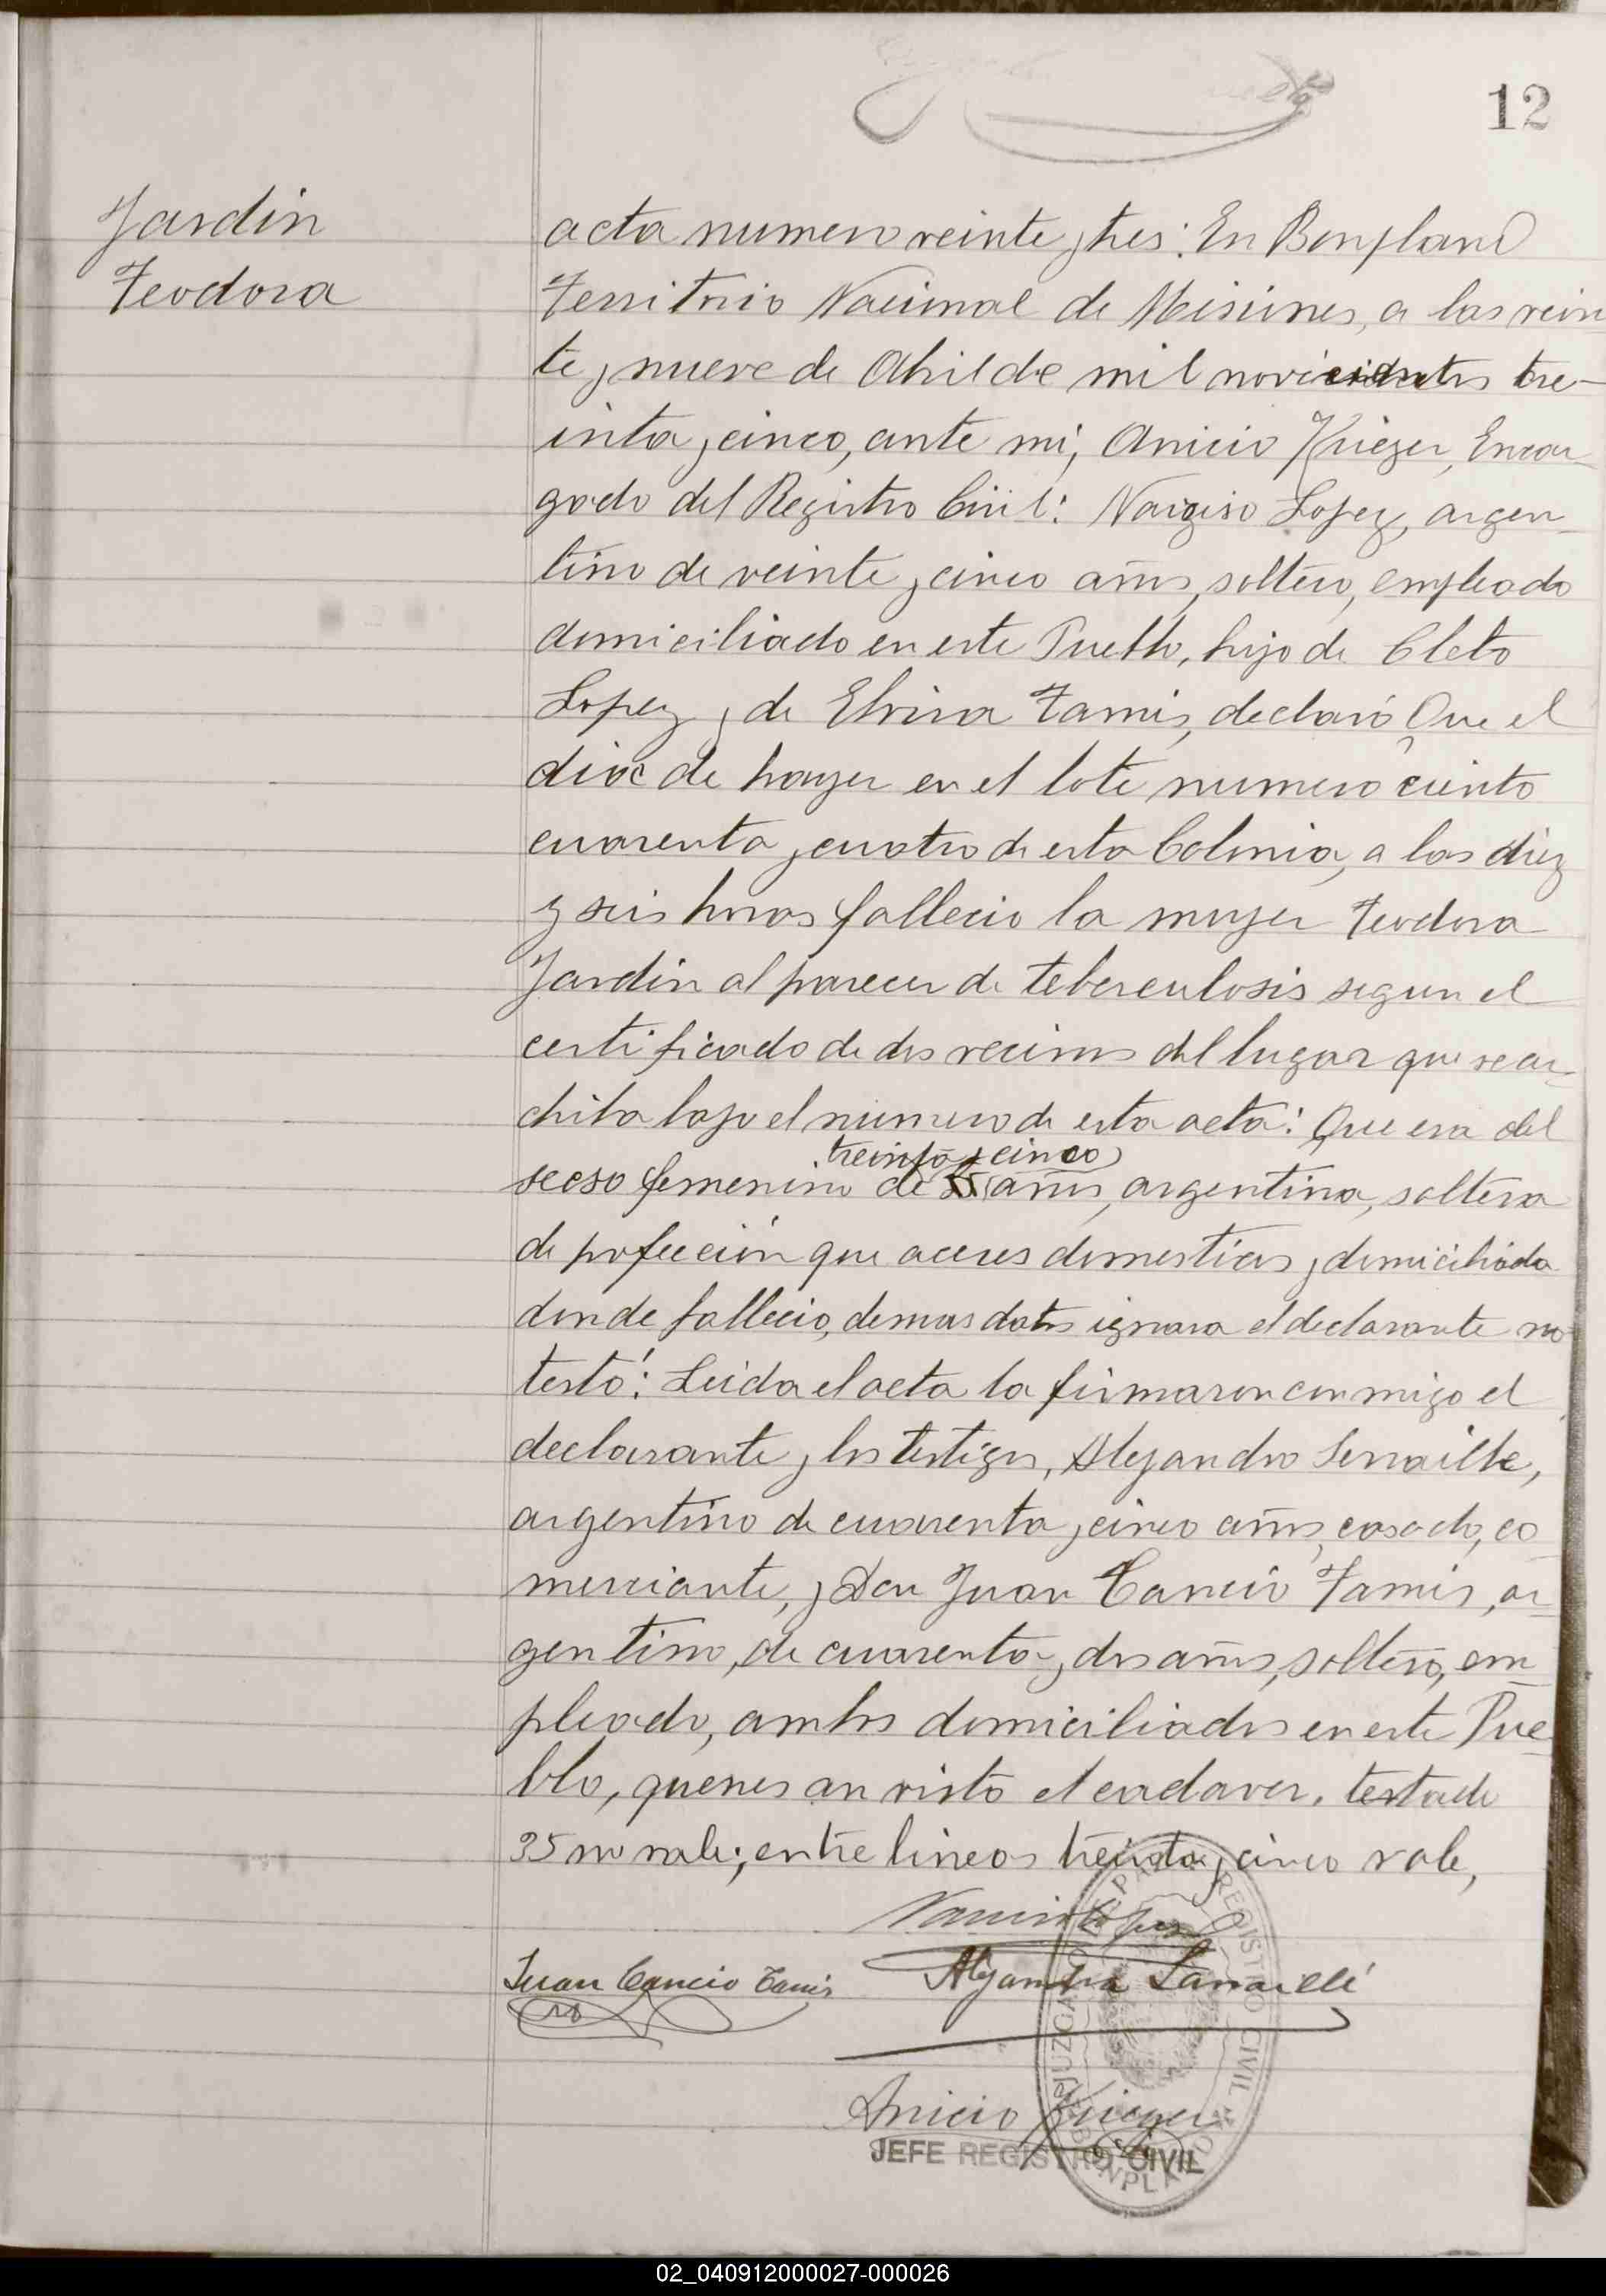 12
Jardin
Teodora
acta numero veinte y tres: En Bonpland
Territorio Nacional de Misiones, a las vein
te y nueve de Abril de mil novecientos tre-
inta y cinco, ante mi, Anicio Krieger, Encar-
gado del Registro Civil: Narciso Lopez, argen-
tino de veinte y cinco años, soltero, empleado
domiciliado en este Pueblo, hijo de Cleto
Lopez y de Elvira Tamis, declaró Que el
dia de hayer en el lote numero ciento
cuarenta y cuatro de esta Colonia, a las diez
y seis horas fallecio la mujer Teodora
Jardin al parecer de teberculosis segun el
certificado de dos vecinos del lugar que se ar-
chiba bajo el numero de esta acta: Que era del
treinta y cinco
secso femenino de 35 años, argentina, soltera
de profeción que aceres domesticos y domiciliada
donde fallecio, demas datos ignora el declarante no
testó: Leida el acta la firmaron conmigo el
declarante y los testigos, Alejandro
argentino de cuarenta y cinco años, casado, co-
merciante, y Don Juan Cancio Tamis, ar-
gentino, de cuarenta y dos años, soltero, em-
pleado, ambos domiciliados en este Pue-
blo, quenes an visto el cadaver. testado
35 no vale; entre lineas treinta y cinco vale,
Narciso Lopez
Juan Cancio Tamis
Anicio Krieger
JEFE REGISTRO CIVIL
JUZGADO DE PAZ Y REGISTRO CIVIL
BONPLAND
02_040912000027-000026